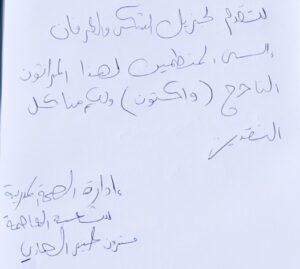 نتقدم بجزيل الشكر والعرفان
إلى المنظمين لهذا المراثون
الناجح (واكتون) ولكم منا كل
التقدير
إدارة الصحة المدرسية
العاصمة